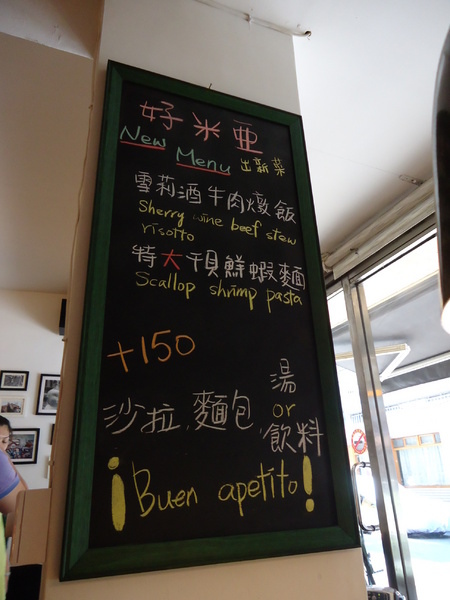 好米亞
New Menu 出新菜
雪莉酒牛肉燉飯
Sherry wine beef stew
risotto
特大干貝鮮蝦麵
Scallop shrimp pasta
+150
沙拉, 麵包, 湯 or 飲料
¡Buen apetito!